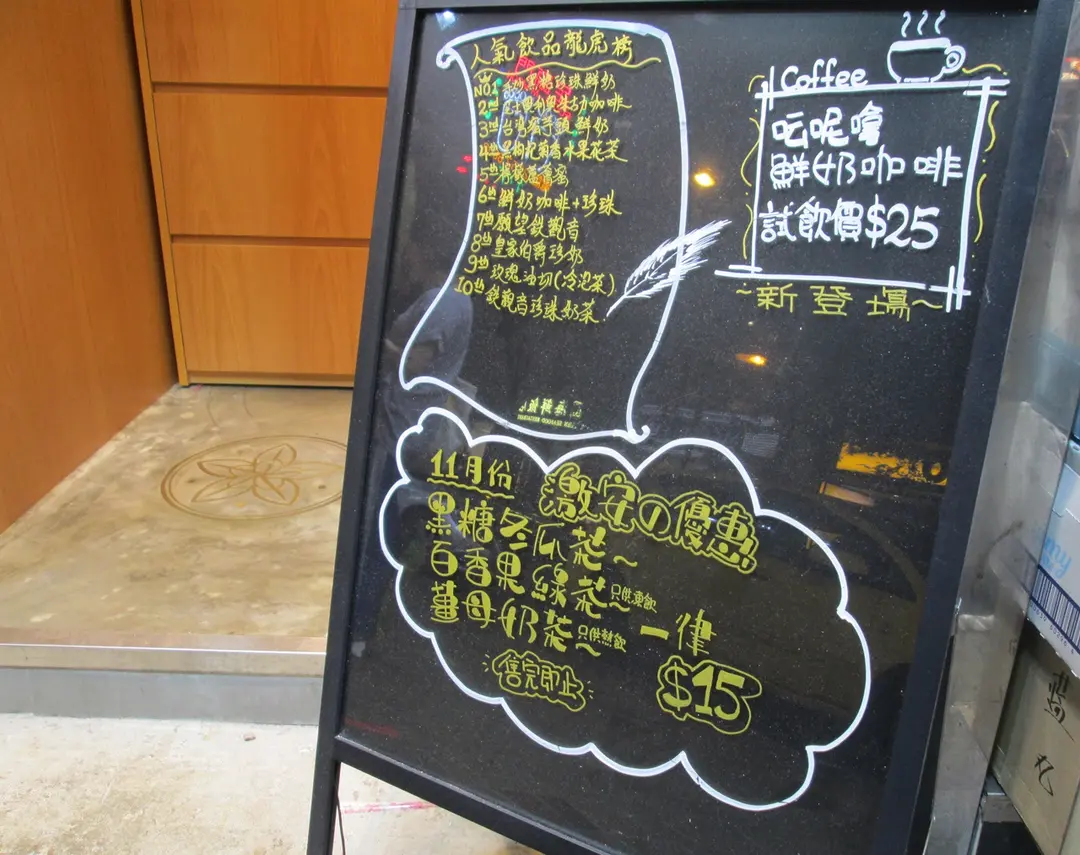 人氣飲品龍虎榜
NO1 黑糖珍珠鮮奶
2nd 咖啡
3rd 台灣蜜芋頭鮮奶
4th 枸杞菊香水果花茶
5th 蘆薈蜜
6th 鮮奶咖啡+珍珠
7th 願望鉄觀音
8th 皇家伯爵珍奶
9th 玫瑰油切(冷泡茶)
10th 鉄觀音珍珠奶茶
Coffee
呍呢嗱
鮮奶咖啡
試飲價$25
~新登場~
11月份 激安の優惠
黑糖冬瓜茶~
百香果綠茶~ 只供凍飲
薑母奶茶~ 只供熱飲 一律
售完即止 $15